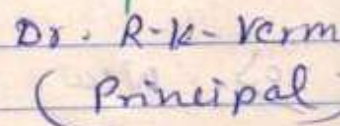 Dr. R-K- Verm
(Principal)